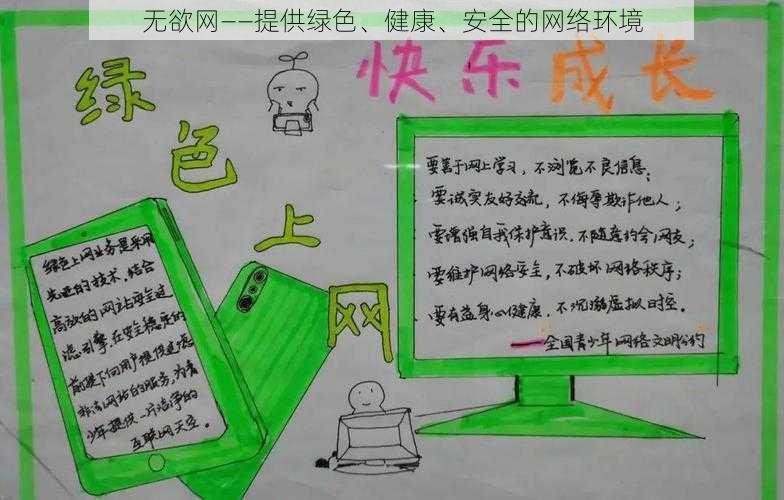 无欲网——提供绿色、健康、安全的网络环境
绿色上网
快乐成长
绿色上网业务是采用
先进的技术,结合
高效的网站安全过
滤引擎在安全稳定的
前提下向用户提供过滤
非法网站的服务,为青
少年提供一片洁净的
互联网天空。
要善于网上学习,不浏览不良信息;
要诚实友好交流,不侮辱欺诈他人;
要增强自我保护意识,不随意约会网友;
要维护网络安全,不破坏网络秩序;
要有益身心健康,不沉溺虚拟时空。
——全国青少年网络文明公约